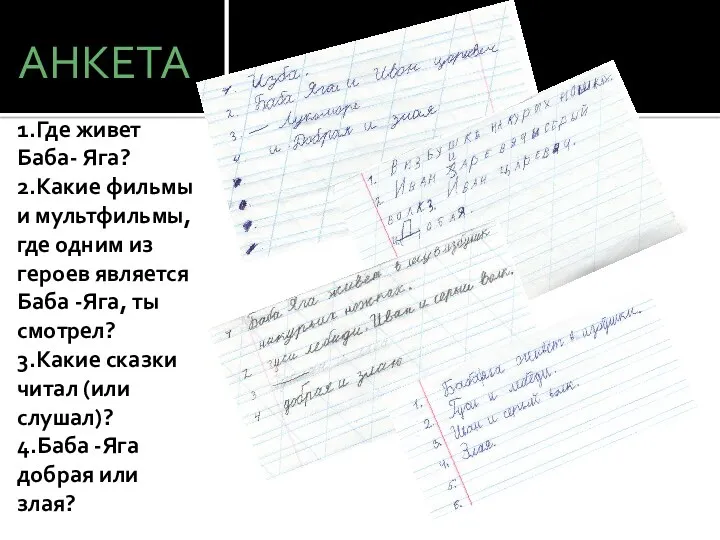 АНКЕТА
1.Где живет
Баба- Яга?
2.Какие фильмы
и мультфильмы,
где одним из
героев является
Баба -Яга, ты
смотрел?
3.Какие сказки
читал (или
слушал)?
4.Баба -Яга
добрая или
злая?
1. Изба.
2. Баба Яга и Иван царевич
3. — Лукоморе
4. и Добрая и злая
1. В ИЗБУШКЕ НА КУРЬХ НОШКАХ.
2 ИВАН ЗАРЕВЯЧ И СЕРЫЙ
ВОЛК 3. ИВАН ЦАРЕВАЧ.
4 ДОБРАЯ.
1 Баба Яга живет в
накурьих ножках.
2 гуси лебиди. Иван и серый волк.
3 —
4 добрая и злаю
1. Бабаяга живёт в избушки.
2. Гуси и лебеди.
3. Иван и серый волк.
4. Злая.
5.
6.